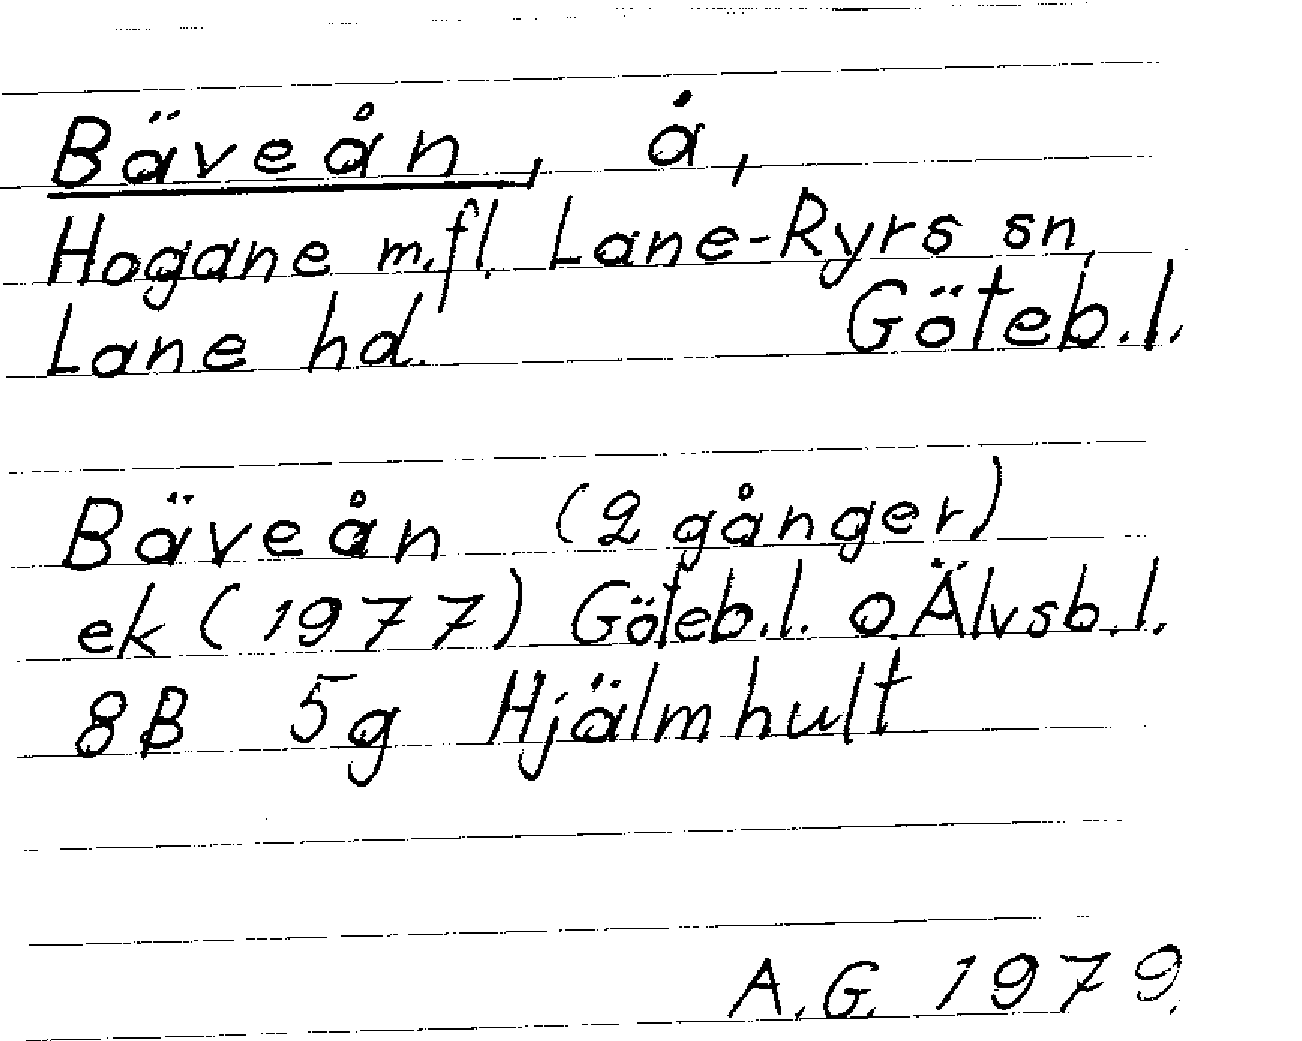 Bäveån, å,
Hogane m.fl. Lane-Ryrs sn,
Lane hd. Göteb.l.
Bäveån (2 gånger)
ek (1977) Göteb.l. o. Älvsb.l.
8B 5g Hjälmhult
A.G. 1979.